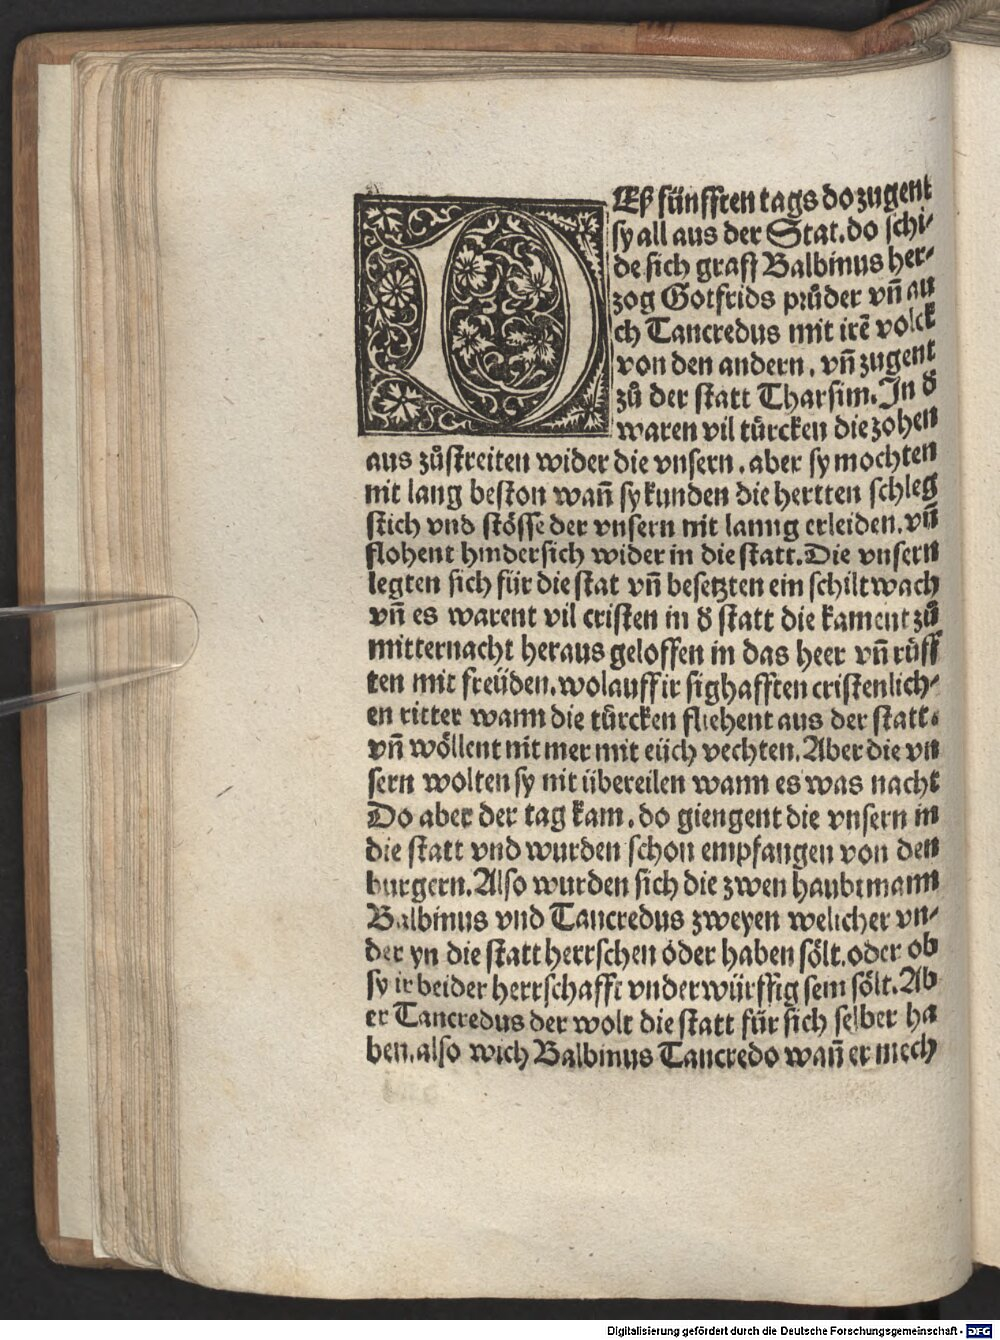 DEß fünfften tags do zugent
sy all aus der Stat. do schi-
de sich graff Balbinus her-
zog Gotfrids pruͦder vñ au
ch Tancredus mit irē volck
von den andern, vñ zugent
zuͦ der statt Tharsim. In ð
waren vil türcken die zohen
aus zuͦ streiten wider die vnsern, aber sy mochten
nit lang beston wañ sy kunden die hertten schleg
stich vnd stösse der vnsern nit lanng erleiden, vñ
flohent hindersich wider in die statt. Die vnsern
legten sich für die stat vñ besetzten ein schiltwach
vñ es warent vil cristen in ð statt die kament zuͦ
mitternacht heraus geloffen in das heer vñ ruͦff
ten mit freüden, wolauff ir sighafften cristenlich-
en ritter wann die türcken fliehent aus der statt.
vñ wöllent nit mer mit eüch vechten. Aber die vn
sern wolten sy nit übereilen wann es was nacht
Do aber der tag kam, do giengent die vnsern in
die statt vnd wurden schon empfangen von den
burgern. Also wurden sich die zwen haubtmann
Balbinus vnd Tancredus zweyen welicher vn-
der yn die statt herrschen oder haben sölt, oder ob
sy ir beider herrschafft vnderwürffig sein sölt. Ab
er Tancredus der wolt die statt für sich selber ha
ben, also wich Balbinus Tancredo wañ er mech
Digitalisierung gefördert durch die Deutsche Forschungsgemeinschaft - DFG